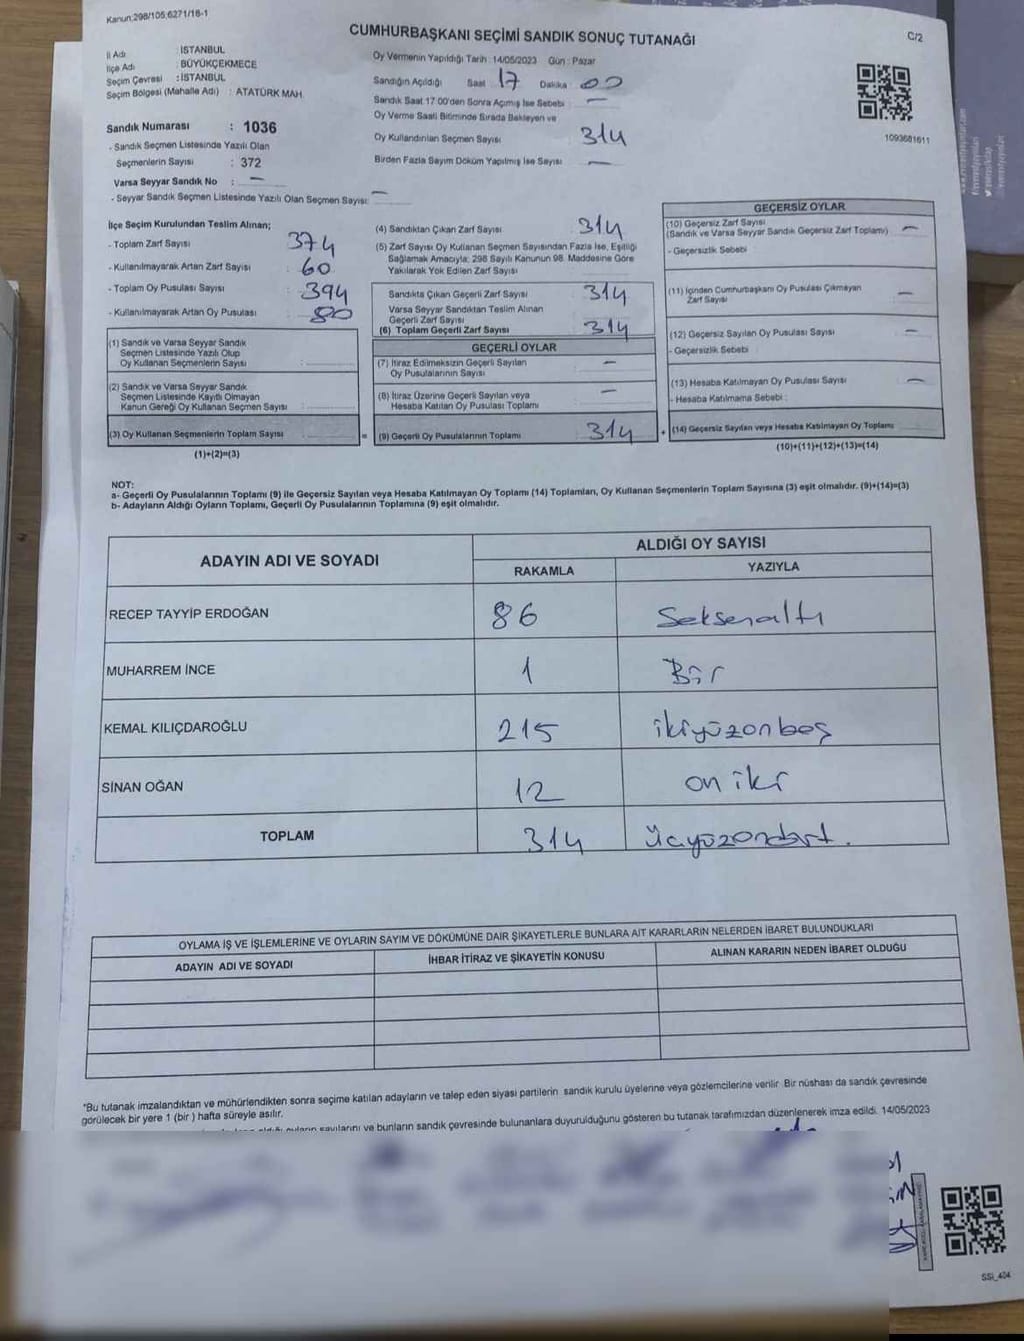 Kanun:298/105;6271/18-1
CUMHURBAŞKANI SEÇİMİ SANDIK SONUÇ TUTANAĞI
C/2
İl Adı : İSTANBUL
İlçe Adı : BÜYÜKÇEKMECE
Seçim Çevresi : İSTANBUL
Seçim Bölgesi (Mahalle Adı) : ATATÜRK MAH.
Sandık Numarası : 1036
- Sandık Seçmen Listesinde Yazılı Olan
Seçmenlerin Sayısı : 372
Varsa Seyyar Sandık No : —
- Seyyar Sandık Seçmen Listesinde Yazılı Olan Seçmen Sayısı: —
Oy Vermenin Yapıldığı Tarih : 14/05/2023 Gün : Pazar
Sandığın Açıldığı Saat : 17 Dakika : 00
Sandık Saat 17.00'den Sonra Açımış İse Sebebi : —
Oy Verme Saati Bitiminde Sırada Bekleyen ve
Oy Kullandırılan Seçmen Sayısı : 314
Birden Fazla Sayım Döküm Yapılmış İse Sayısı : —
1093681611
İlçe Seçim Kurulundan Teslim Alınan;
- Toplam Zarf Sayısı : 374
- Kullanılmayarak Artan Zarf Sayısı : 60
- Toplam Oy Pusulası Sayısı : 394
- Kullanılmayarak Artan Oy Pusulası : 80
(1) Sandık ve Varsa Seyyar Sandık
Seçmen Listesinde Yazılı Olup
Oy Kullanan Seçmenlerin Sayısı :
(2) Sandık ve Varsa Seyyar Sandık
Seçmen Listesinde Kayıtlı Olmayan
Kanun Gereği Oy Kullanan Seçmen Sayısı :
(3) Oy Kullanan Seçmenlerin Toplam Sayısı :
(1)+(2)=(3)
(4) Sandıktan Çıkan Zarf Sayısı : 314
(5) Zarf Sayısı Oy Kullanan Seçmen Sayısından Fazla İse, Eşitliği
Sağlamak Amacıyla; 298 Sayılı Kanunun 98. Maddesine Göre
Yakılarak Yok Edilen Zarf Sayısı :
Sandıkta Çıkan Geçerli Zarf Sayısı : 314
Varsa Seyyar Sandıktan Teslim Alınan
Geçerli Zarf Sayısı :
(6) Toplam Geçerli Zarf Sayısı : 314
GEÇERLİ OYLAR
(7) İtiraz Edilmeksizin Geçerli Sayılan
Oy Pusulalarının Sayısı : —
(8) İtiraz Üzerine Geçerli Sayılan veya
Hesaba Katılan Oy Pusulası Toplamı : —
= (9) Geçerli Oy Pusulalarının Toplamı : 314
GEÇERSİZ OYLAR
(10) Geçersiz Zarf Sayısı
(Sandık ve Varsa Seyyar Sandık Geçersiz Zarf Toplamı) : —
- Geçersizlik Sebebi :
(11) İçinden Cumhurbaşkanı Oy Pusulası Çıkmayan
Zarf Sayısı : —
(12) Geçersiz Sayılan Oy Pusulası Sayısı : —
- Geçersizlik Sebebi :
(13) Hesaba Katılmayan Oy Pusulası Sayısı : —
- Hesaba Katılmama Sebebi :
+ (14) Geçersiz Sayılan veya Hesaba Katılmayan Oy Toplamı :
(10)+(11)+(12)+(13)=(14)
NOT:
a- Geçerli Oy Pusulalarının Toplamı (9) ile Geçersiz Sayılan veya Hesaba Katılmayan Oy Toplamı (14) Toplamları, Oy Kullanan Seçmenlerin Toplam Sayısına (3) eşit olmalıdır. (9)+(14)=(3)
b- Adayların Aldığı Oyların Toplamı, Geçerli Oy Pusulalarının Toplamına (9) eşit olmalıdır.
ADAYIN ADI VE SOYADI
ALDIĞI OY SAYISI
RAKAMLA YAZIYLA
RECEP TAYYİP ERDOĞAN 86 Seksenaltı
MUHARREM İNCE 1 Bir
KEMAL KILIÇDAROĞLU 215 ikiyüzonbeş
SİNAN OĞAN 12 on iki
TOPLAM 314 üçyüzondört.
OYLAMA İŞ VE İŞLEMLERİNE VE OYLARIN SAYIM VE DÖKÜMÜNE DAİR ŞİKAYETLERLE BUNLARA AİT KARARLARIN NELERDEN İBARET BULUNDUKLARI
ADAYIN ADI VE SOYADI İHBAR İTİRAZ VE ŞİKAYETİN KONUSU ALINAN KARARIN NEDEN İBARET OLDUĞU
*Bu tutanak imzalandıktan ve mühürlendikten sonra seçime katılan adayların ve talep eden siyasi partilerin sandık kurulu üyelerine veya gözlemcilerine verilir. Bir nüshası da sandık çevresinde
görülecek bir yere 1 (bir ) hafta süreyle asılır.
oyların sayılarını ve bunların sandık çevresinde bulunanlara duyurulduğunu gösteren bu tutanak tarafımızdan düzenlenerek imza edildi. 14/05/2023
SSİ_404